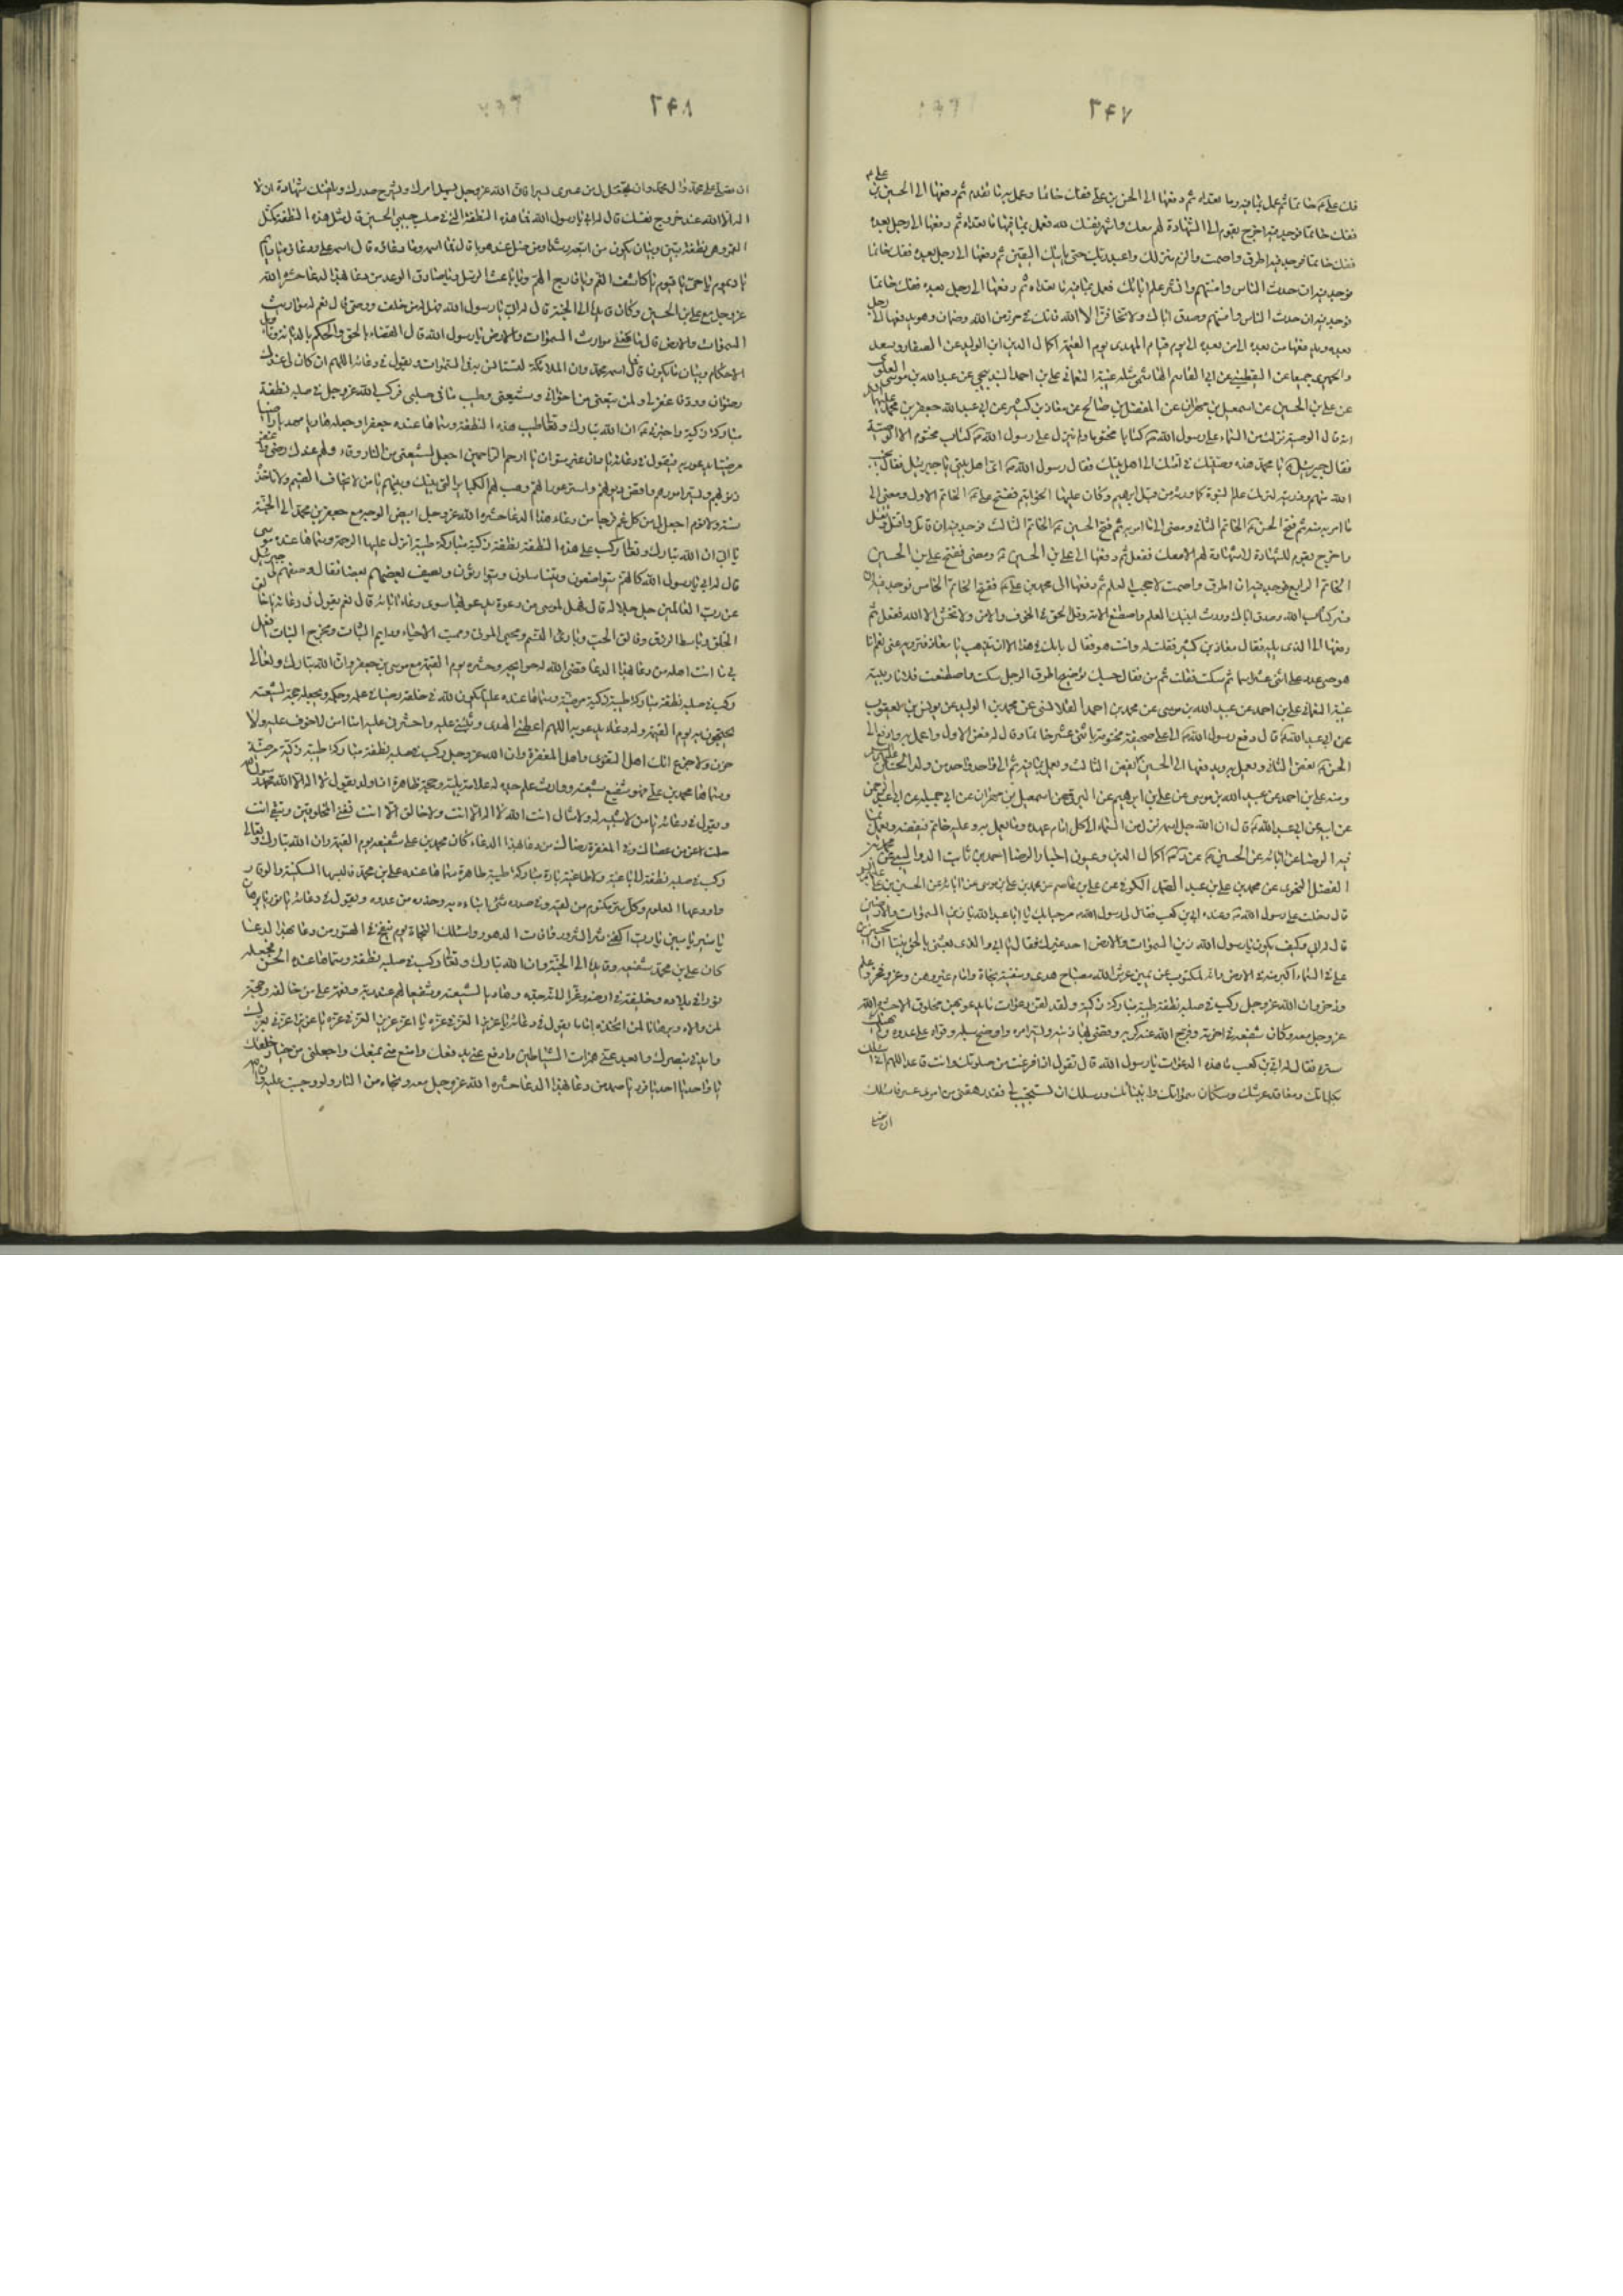 ٢٤٧
فك علي ع خاتما ثم عمل بما فيه وما تعداه ثم دفعها الى الحسن بن علي ففك خاتما وعمل به ما تعداه ثم دفعها الى الحسين بن علي ع
ففك خاتما فوجد فيه اخرج بقوم الى الشهادة لهم معك واشر نفسك لله فعمل بما فيها ما تعداه ثم دفعها الى رجل بعده
ففك خاتما فوجد فيه اطرق واصمت والزم منزلك واعبد ربك حتى ياتيك اليقين ثم دفعها الى رجل بعده ففك خاتما
فوجد فيه ان حدث الناس وافتهم وانشر علم ابائك فعمل بما فيه ما تعداه ثم دفعها الى رجل بعده ففك خاتما
فوجد فيه ان حدث الناس وافتهم وصدق اباك ولا تخافن الا الله فانك في حرز من الله وضمان وهو يدفعها الى رجل
بعده ويدفعها من بعده الى من بعده الى يوم قيام المهدي يوم القيمة اكمال الدين ابن الوليد عن الصفار وسعد
والحميري جميعا عن اليقطيني عن ابي القاسم الهاشمي مثله غيبة النعماني علي بن احمد البندنيجي عن عبيد الله بن موسى العلوي
عن علي بن الحسين عن اسمعيل بن مهران عن المفضل بن صالح عن معاذ بن كثير عن ابي عبد الله جعفر بن محمد عليهما
انه قال الوصية نزلت من السماء على رسول الله ص كتابا مختوما ولم ينزل على رسول الله ص كتاب مختوم الا الوصية
فقال جبرئيل ع يا محمد هذه وصيتك في امتك الى اهل بيتك فقال رسول الله ص اي اهل بيتي يا جبرئيل فقال نجيب
الله منهم وذريته ليرثك علم النبوة كما ورثه من قبل ابرهيم وكان عليها الخواتيم ففتح علي ع الخاتم الاول ومضى الى
ما امر به فيه ثم فتح الحسن ع الخاتم الثاني ومضى الى ما امر به ثم فتح الحسين ع الخاتم الثالث فوجد فيه ان قاتل واقتل وتقتل
واخرج بقوم للشهادة لا شهادة لهم الا معك ففعل ثم دفعها الى علي بن الحسين ع ومضى ففتح علي بن الحسين
الخاتم الرابع فوجد فيه ان اطرق واصمت لما حجب العلم ثم دفعها الى محمد بن علي ع ففتح الخاتم الخامس فوجد فيه ان
فسر كتاب الله وصدق اباك وورث ابنك العلم واصطنع الامة وقل الحق في الخوف والامن ولا تخش الا الله ففعل ثم
دفعها الى الذي يليه فقال معاذ بن كثير فقلت له وانت هو فقال ما بك في هذا الا ان تذهب يا معاذ فترويه عني نعم انا
هو حتى عدد علي اثنى عشر اسما ثم سكت فقلت ثم من فقال حسبك
غيبة النعماني علي بن احمد عن عبيد الله بن موسى عن محمد بن احمد القلانسي عن محمد بن الوليد عن يونس بن يعقوب
عن ابي عبد الله ع قال دفع رسول الله ص الى علي صحيفة مختومة باثنى عشر خاتما وقال له فض الاول واعمل به وادفع الى
الحسن ع يفض الثاني ويعمل به ويدفعها الى الحسين ع يفض الثالث ويعمل بما فيه ثم الى واحد واحد من ولد الحسين عليهم
ومنه علي بن احمد عن عبيد الله بن موسى عن علي بن ابرهيم عن البرقي عن اسمعيل بن مهران عن ابي جميلة عن ابي عبد الرحمن
عن ابي عبد الله ع قال ان الله جل اسمه نزل من السماء الى كل امام عهده وما يعمل به وعليه خاتم فيفضه ويعمل بما
فيه الرضا عن ابائه عن الحسين ع اكمال الدين وعيون اخبار الرضا احمد بن ثابت الدواليبي عن محمد بن
الفضل النحوي عن محمد بن علي بن عبد الصمد الكوفي عن علي بن عاصم عن محمد بن علي بن موسى عن ابائه عن الحسين بن علي عليهم
قال دخلت على رسول الله ص وعنده ابي بن كعب فقال لي رسول الله ص مرحبا بك يا ابا عبد الله يا زين السموات والارضين
قال له ابي وكيف يكون يا رسول الله زين السموات والارض احد غيرك فقال يا ابي والذي بعثني بالحق نبيا ان الحسين بن
علي في السماء اكبر منه في الارض وانه لمكتوب عن يمين عرش الله مصباح هدى وسفينة نجاة وامام غير وهن وعز وفخر وعلم
وذخر وان الله عز وجل ركب في صلبه نطفة طيبة مباركة زكية ولقد لقن دعوات ما يدعو بهن مخلوق الا حشره الله
عز وجل معه وكان شفيعه في اخرته وفرج الله عنه كربه وقضى بها دينه ويسر امره واوضح سبيله وقواه على عدوه ولم يهتك
ستره فقال له ابي بن كعب ما هذه الدعوات يا رسول الله قال تقول اذا فرغت من صلوتك وانت قاعد اللهم اني اسئلك
بكلماتك ومعاقد عرشك وسكان سمواتك وانبيائك ورسلك ان تستجيب لي فقد رهقني من امري عسر فاسئلك
ان تصلي
٢٤٨
ان تصلي على محمد وال محمد وان تجعل لي من عسري يسرا فان الله عز وجل يسهل امرك ويشرح صدرك ويلقنك شهادة ان لا
اله الا الله عند خروج نفسك قال له ابي يا رسول الله فما هذه النطفة التي في صلب حبيبي الحسين قال مثل هذه النطفة كمثل
القمر وهي نطفة تبيين وبيان يكون من اتبعه رشيدا ومن ضل عنه هويا قال فما اسمه وما دعاؤه قال اسمه علي ودعاؤه يا دائم
يا ديموم يا حي يا قيوم يا كاشف الغم ويا فارج الهم ويا باعث الرسل ويا صادق الوعد من دعا بهذا الدعا حشره الله
عز وجل مع علي بن الحسين وكان قائده الى الجنة قال له ابي يا رسول الله فهل له من خلف ووصي قال نعم له مواريث
السموات والارض قال ما معنى مواريث السموات والارض يا رسول الله قال القضاء بالحق والحكم بالديانة وتاويل
الاحكام وبيان ما يكون قال فما اسمه قال اسمه محمد وان الملائكة لتستانس به في السموات ويقول في دعائه اللهم ان كان لي عندك
رضوان وود فاغفر لي ولمن تبعني من اخواني وشيعتي وطيب ما في صلبي فركب الله عز وجل في صلبه نطفة
مباركة زكية واخبرني ع ان الله تبارك وتعالى طيب هذه النطفة وسماها عنده جعفرا وجعله هاديا مهديا راضيا
مرضيا يدعو ربه فيقول في دعائه يا دان غير متوان يا ارحم الراحمين اجعل لشيعتي من النار وقاء ولهم عندك رضى واغفر
ذنوبهم ويسر امورهم واقض ديونهم واستر عوراتهم وهب لهم الكبائر التي بينك وبينهم يا من لا يخاف الضيم ولا تاخذه
سنة ولا نوم اجعل لي من كل غم فرجا من دعا بهذا الدعا حشره الله عز وجل ابيض الوجه مع جعفر بن محمد الى الجنة
يا ابي ان الله تبارك وتعالى ركب على هذه النطفة نطفة زكية مباركة طيبة انزل عليها الرحمة وسماها عنده موسى
قال له ابي يا رسول الله كانهم يتواصفون ويتناسلون ويتوارثون ويصف بعضهم بعضا فقال وصفهم لي جبرئيل
عن رب العالمين جل جلاله قال فهل لموسى من دعوة يدعو بها سوى دعاء ابائه قال نعم يقول في دعائه يا خالق
الخلق وباسط الرزق وفالق الحب وبارئ النسم ومحيي الموتى ومميت الاحياء ودائم الثبات ومخرج النبات افعل
بي ما انت اهله من دعا بهذا الدعا قضى الله له حوايجه وحشره يوم القيمة مع موسى بن جعفر وان الله تبارك وتعالى
ركب في صلبه نطفة مباركة طيبة زكية مرضية وسماها عنده عليا يكون لله في خلقه رضيا في علمه وحكمه ويجعله حجة لشيعته
يحتجون به يوم القيمة وله دعاء يدعو به اللهم اعطني الهدى وثبتني عليه واحشرني عليه امنا امن من لا خوف عليه ولا
حزن ولا جزع انك اهل التقوى واهل المغفرة وان الله عز وجل ركب في صلبه نطفة مباركة طيبة زكية مرضية
وسماها محمد بن علي فهو شفيع شيعته ووارث علم جده له علامة بينة وحجة ظاهرة اذا ولد يقول لا اله الا الله محمد رسول الله
ويقول في دعائه يا من لا شبيه له ولا مثال انت الله لا اله الا انت ولا خالق الا انت تفني المخلوقين وتبقى انت
حلمت عمن عصاك وفي المغفرة رضاك من دعا بهذا الدعاء كان محمد بن علي شفيعه يوم القيمة وان الله تبارك وتعالى
ركب في صلبه نطفة لا باغية ولا طاغية بارة مباركة طيبة طاهرة سماها عنده علي بن محمد فالبسها السكينة والوقار
واودعها العلوم وكل سر مكتوم من لقيه وفي صدره شئ انباه به وحذره من عدوه ويقول في دعائه يا نور يا برهان
يا منير يا مبين يا رب اكفني شر الشرور وافات الدهور واسئلك النجاة يوم ينفخ في الصور من دعا بهذا الدعا
كان علي بن محمد شفيعه وقائده الى الجنة وان الله تبارك وتعالى ركب في صلبه نطفة وسماها عنده الحسن فجعله
نورا في بلاده وخليفة في ارضه وعزا لامة جده وهاديا لشيعته وشفيعا لهم عند ربه ونقمة على من خالفه وحجة
لمن والاه وبرهانا لمن اتخذه اماما يقول في دعائه يا عزيز العز في عزه يا اعز عزيز العز في عزه يا عزيز اعزني بعزك
وايدني بنصرك وابعد عني همزات الشياطين وادفع عني بدفعك وامنع عني بمنعك واجعلني من خيار خلقك
يا واحد يا احد يا فرد يا صمد من دعا بهذا الدعا حشره الله عز وجل معه ونجاه من النار ولو وجبت عليه